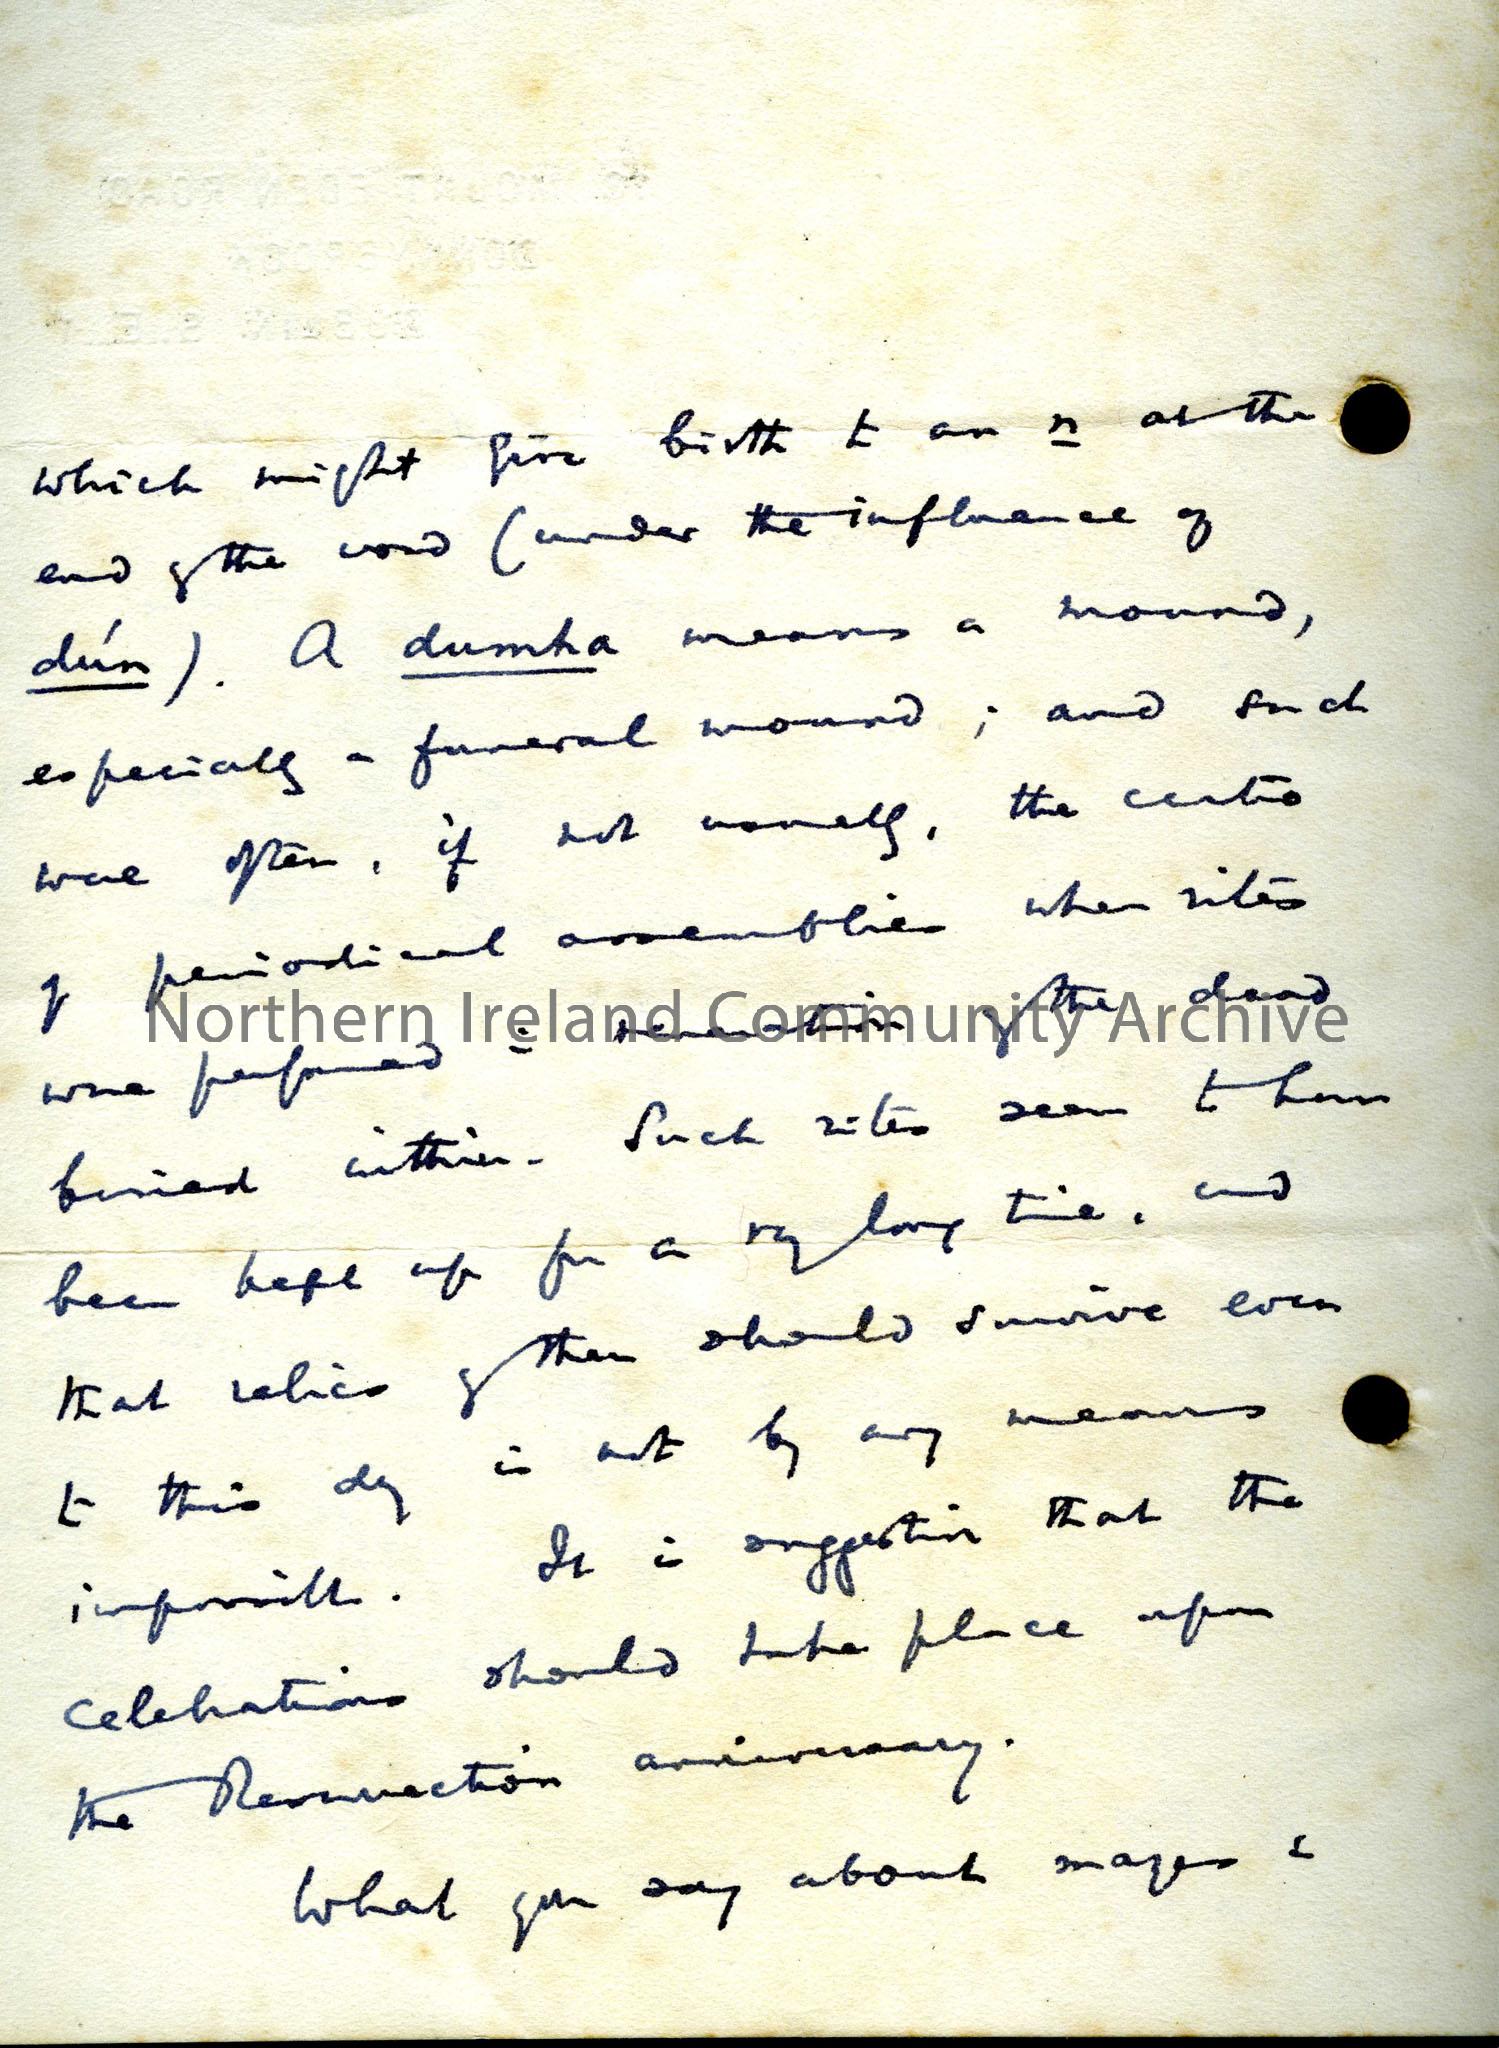 which might give birth to an n at the
end of the word (under the influence of
dún). A dumha means a mound,
especially a funeral mound; and such
were often, if not usually, the centres
of periodical assemblies when rites
were performed in veneration of the dead
Northern Ireland Community Archive
buried within. Such rites seem to have
been kept up for a very long time, and
that relics of them should survive even
to this day is not by any means
impossible. It is suggestive that the
celebrations should take place upon
the Resurrection anniversary.
What you say about mazes &